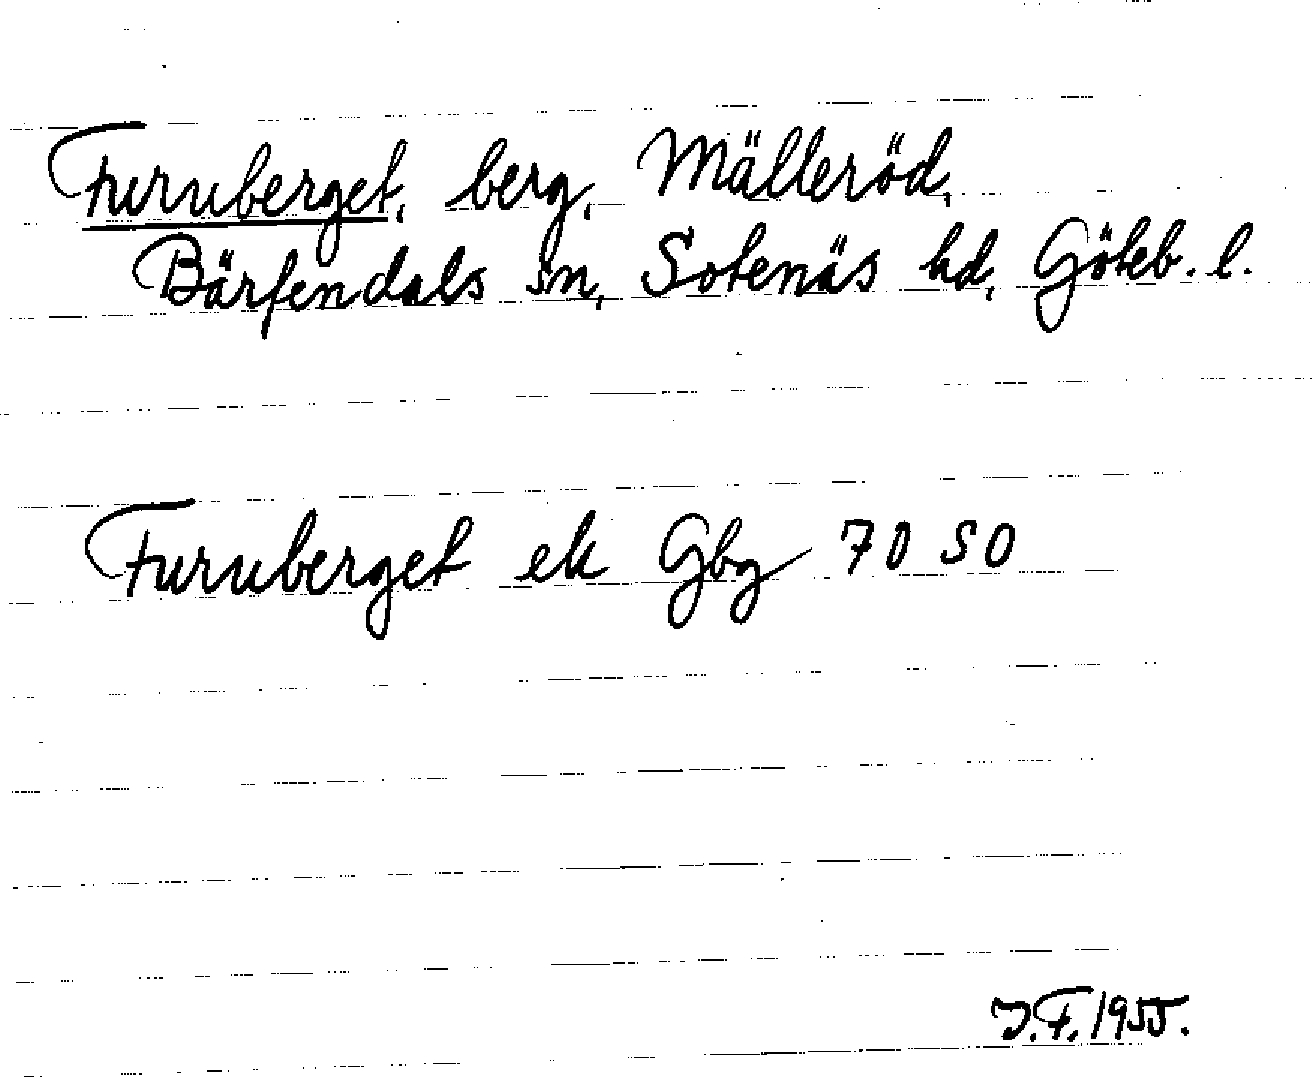 Furuberget, berg, Mälleröd,
Bärfendals sn, Sotenäs hd, Göteb. l.
Furuberget ek Gbg 70 SO
J.F. 1955.